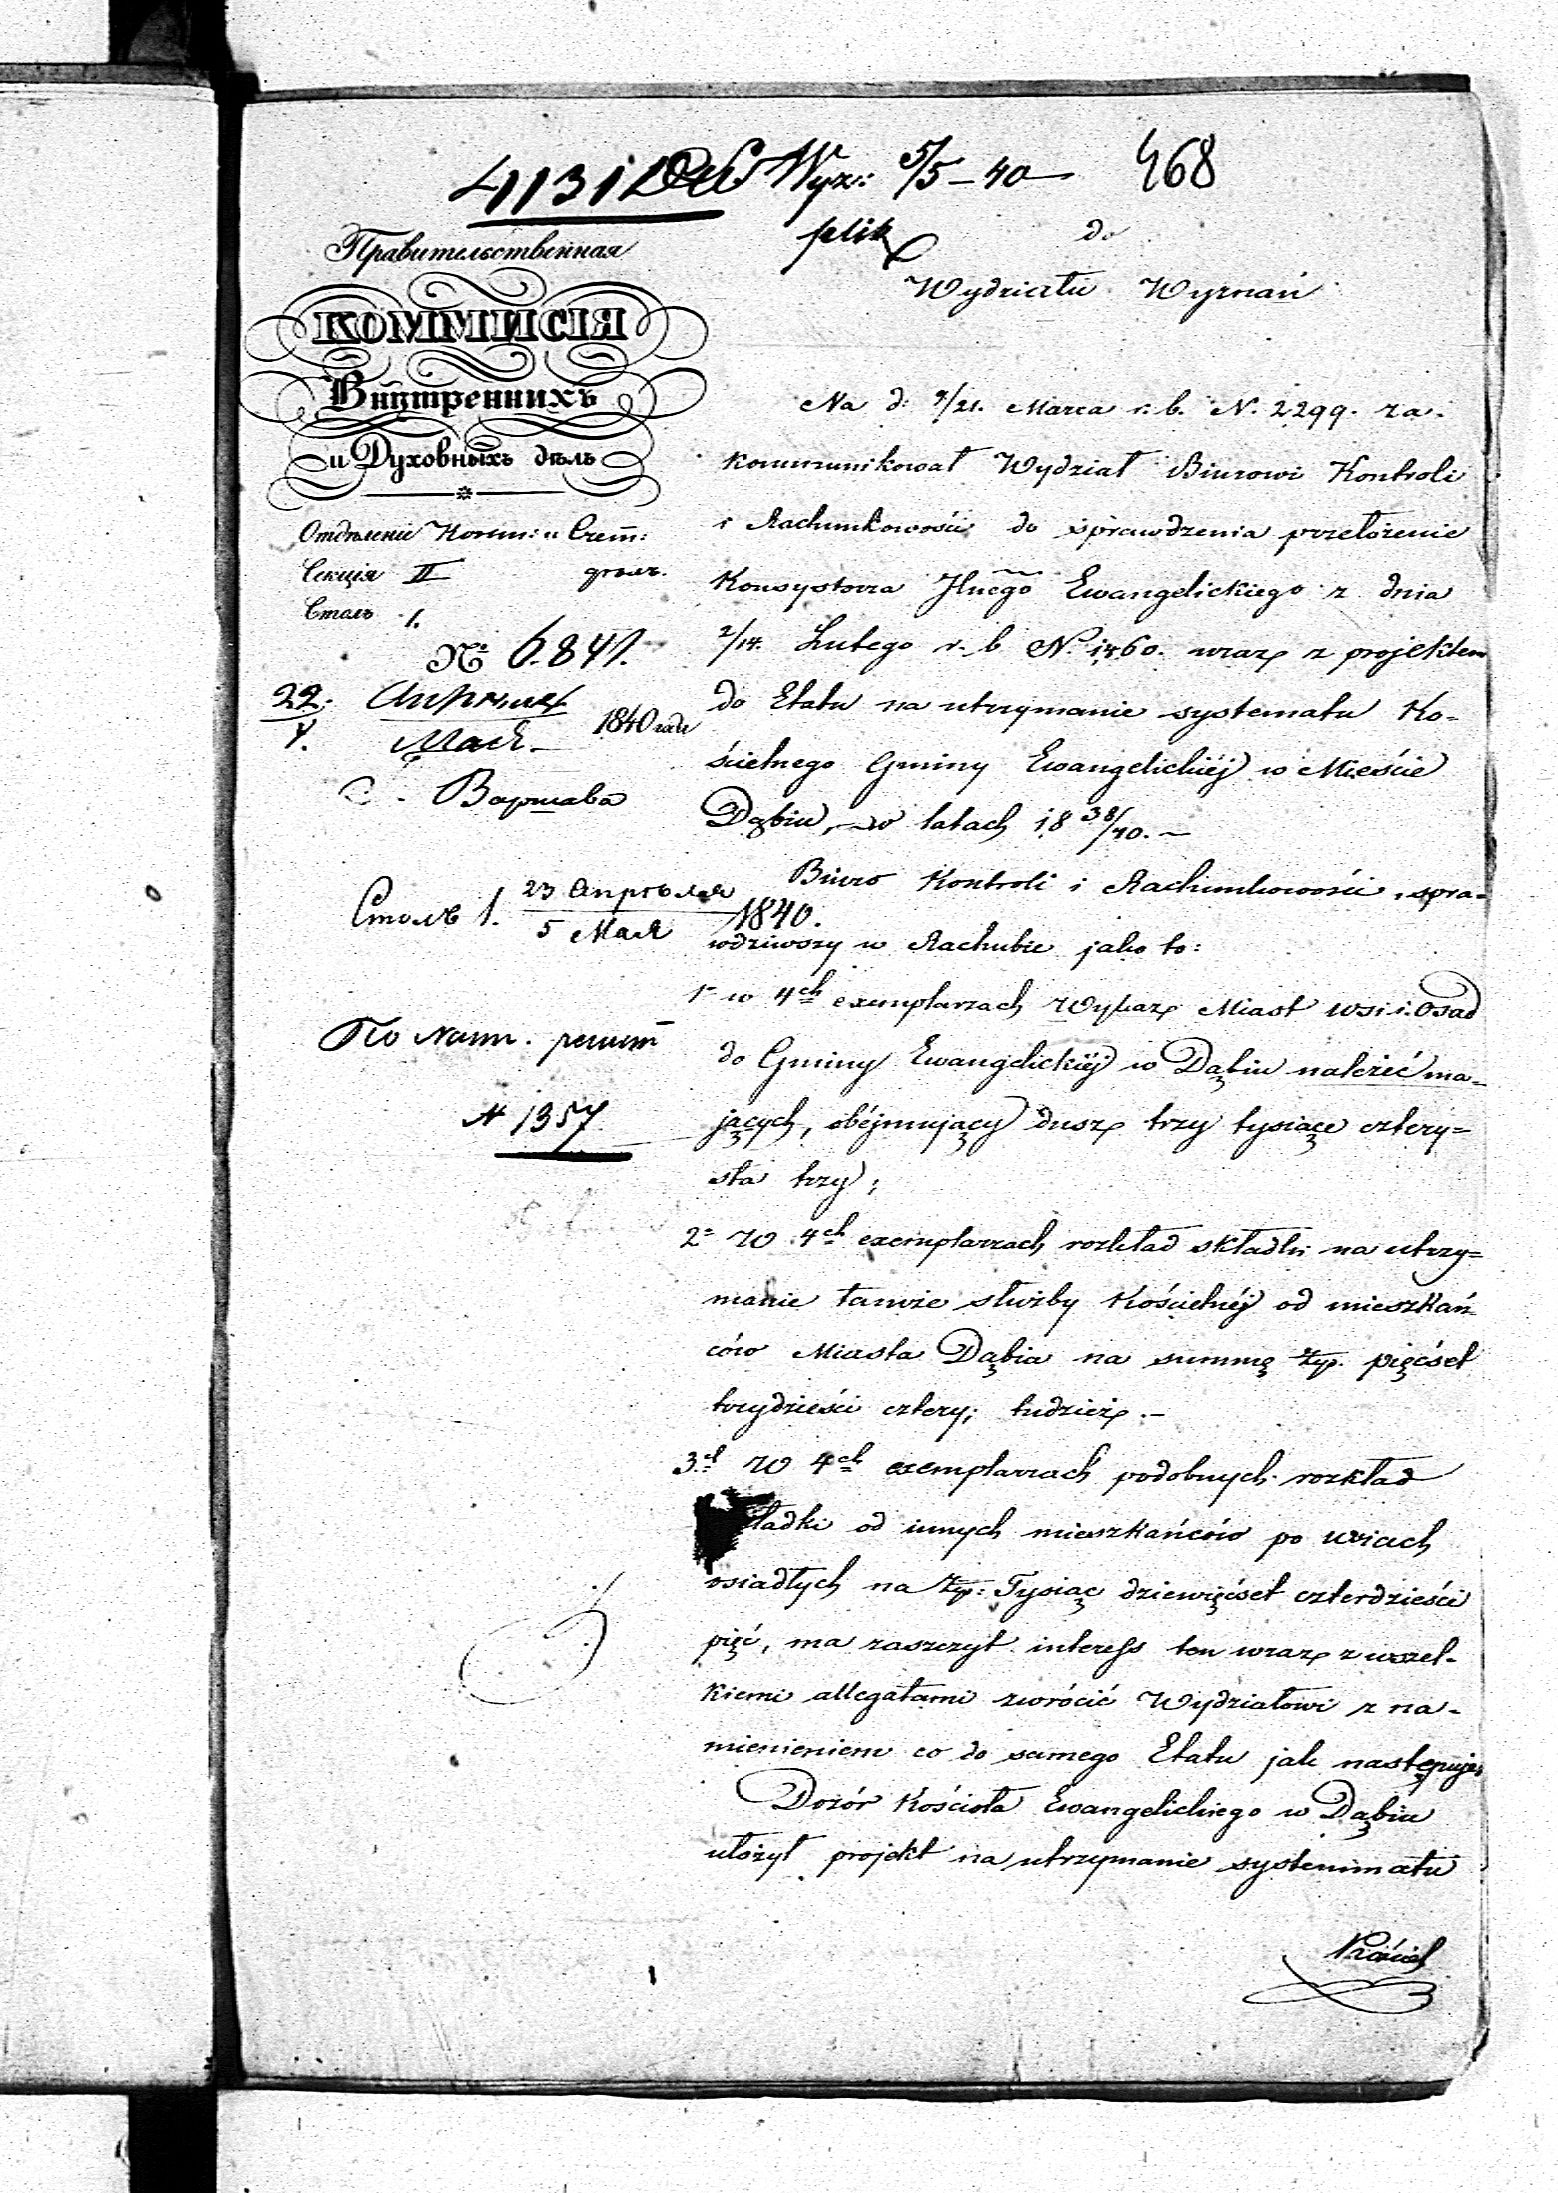 4131 Wyz: 5/5 – 40 468
plik
Правительственная
КОММИСІЯ
Внутреннихъ
и Духовныхъ дѣлъ
Отдѣленіе Конт: и Счет:
Секція II
Столъ 1.
№ 6.841.
22. Апрѣля
4. Мая 1840 года
Варшава
Столъ 1. 23 Апрѣля
5 Мая 1840.
По
N 1357
do
Wydziału Wyznań
Na d: 9/21. Marca r. b. N. 2299. za-
kommunikował Wydział Biurowi Kontroli
i Rachunkowości do sprawdzenia przełożenie
Konsystorza Jlnego Ewangelickiego z dnia
2/14. Lutego r. b N. 1460. wraz z projektem
do Etatu na utrzymanie systematu Ko-
ścielnego Gminy Ewangelickiéj w Mieście
Dąbiu, w latach 18 38/40. –
Biuro Kontroli i Rachunkowości, spra-
wdziwszy w Rachubie jako to:
1- w 4ch exemplarzach Wykaz Miast wsi i Osad
do Gminy Ewangelickiéj w Dąbiu należéć ma-
jących, obéjmujący dusz trzy tysiące cztery=
sta trzy;
2= w 4ch exemplarzach rozkład składki na utrzy=
manie tamże służby Kościelnéj od mieszkań-
ców Miasta Dąbia na summę Złp. pięćset
trzydzieści cztery; tudzież. –
3. w 4ch exemplarzach podobnych rozkład
ładki od innych mieszkańców po wsiach
osiadłych na Złp: Tysiąc dziewięćset czterdzieści
pięć, ma zaszczyt interess ten wraz z wszel-
kiemi allegatami zwrócić Wydziałowi z na-
mienieniem co do samego Etatu jak następuje:
Dozór Kościoła Ewangelickiego w Dąbiu
ułożył projekt na utrzymanie systemmatu
Kościel